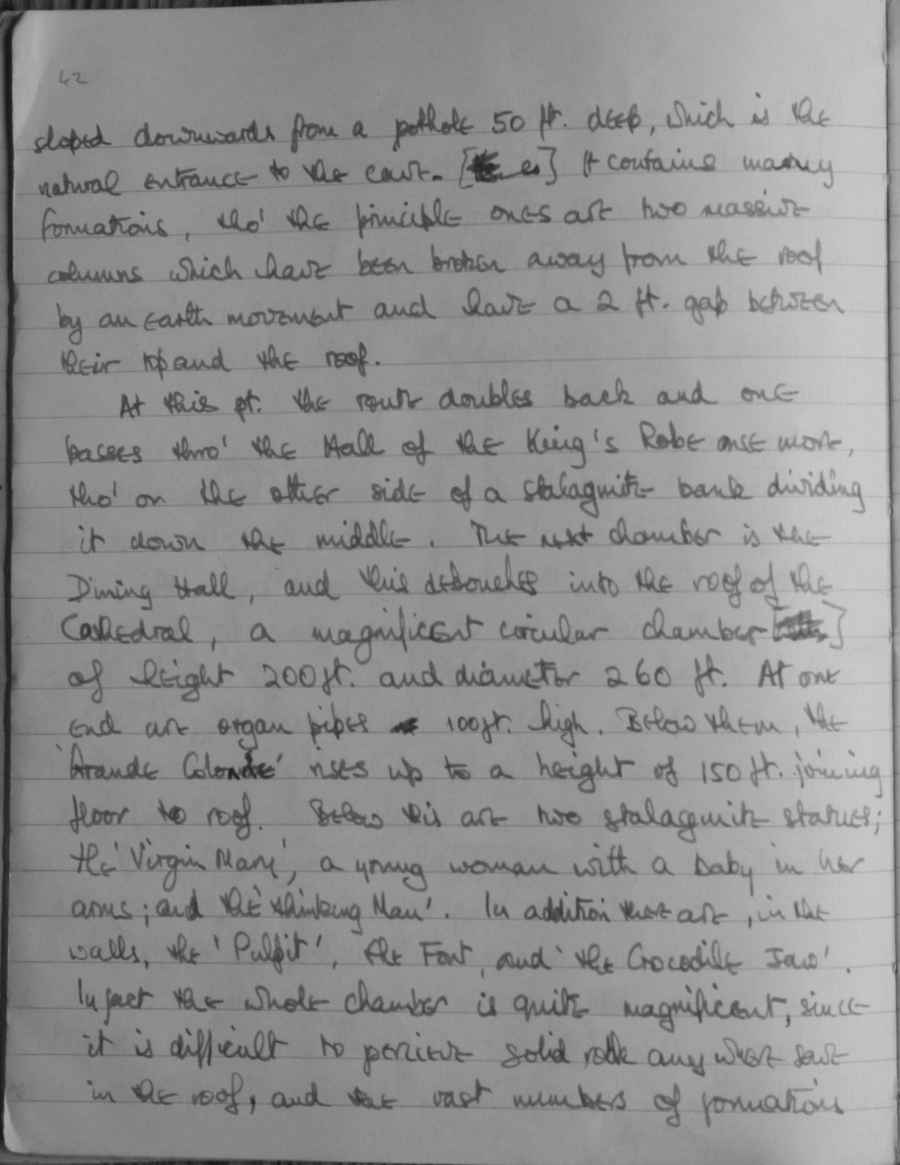 42
sloped downwards from a pothole 50 ft. deep, which is the
natural entrance to the cave. [ es] It contains manny
formations, tho' the principle ones are two massive
columns which have been broken away from the roof
by an earth movement and have a 2 ft. gap between
their top and the roof.
At this pt. the route doubles back and one
passes thro' the Hall of the King's Robe once more,
tho' on the other side of a stalagmite bank dividing
it down the middle. The next chamber is the
Dining Hall, and this debouches into the roof of the
Cathedral, a magnificent circular chamber [ ]
of height 200 ft. and diameter 260 ft. At one
end are organ pipes 100 ft. high. Below them, the
'Grande Colonde' rises up to a height of 150 ft. joining
floor to roof. Below this are two stalagmite statues;
the 'Virgin Mary', a young woman with a baby in her
arms; and the 'thinking Man'. In addition there are, in the
walls, the 'Pulpit', the Font, and 'the Crocodile Jaw'.
In fact the whole chamber is quite magnificent, since
it is difficult to percieve solid rock any where save
in the roof, and the vast numbers of formations